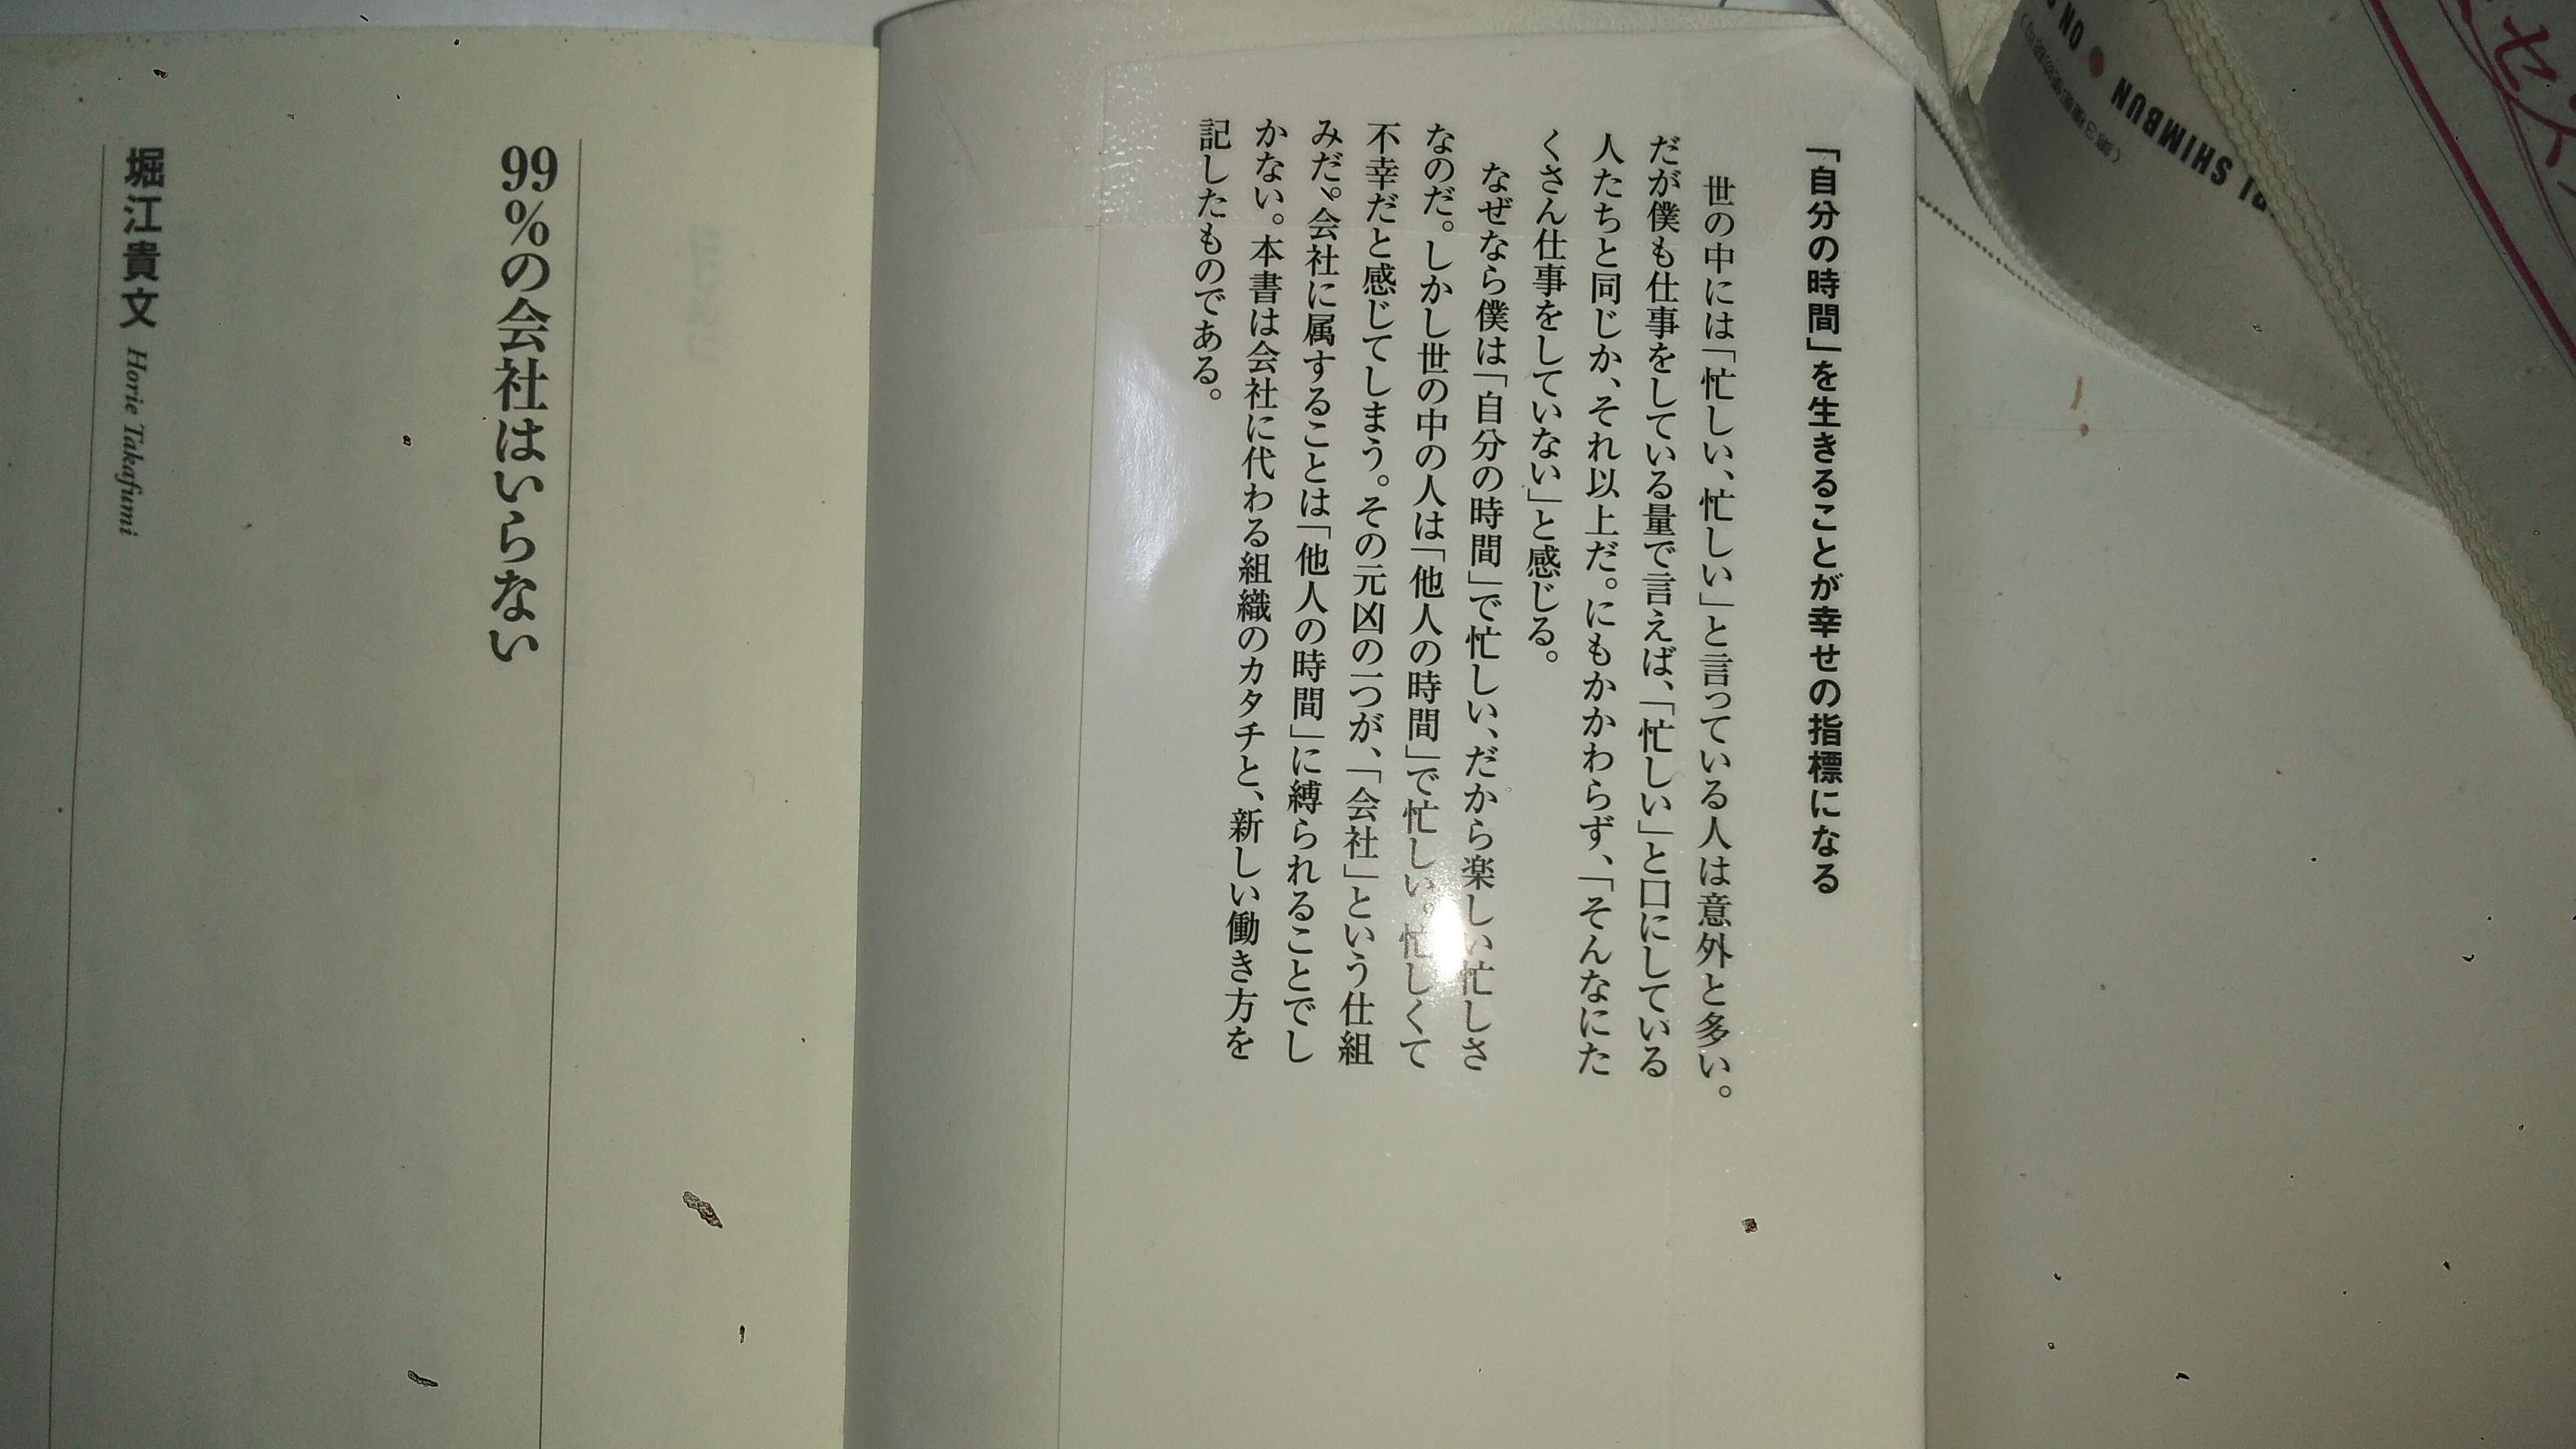 「自分の時間」を生きることが幸せの指標になる
世の中には「忙しい、忙しい」と言っている人は意外と多い。
だが僕も仕事をしている量で言えば、「忙しい」と口にしている
人たちと同じか、それ以上だ。にもかかわらず、「そんなにた
くさん仕事をしていない」と感じる。
なぜなら僕は「自分の時間」で忙しい、だから楽しい忙しさ
なのだ。しかし世の中の人は「他人の時間」で忙しい。忙しくて
不幸だと感じてしまう。その元凶の一つが、「会社」という仕組
みだ。会社に属することは「他人の時間」に縛られることでし
かない。本書は会社に代わる組織のカタチと、新しい働き方を
記したものである。
99%の会社はいらない
堀江貴文 Horie Takafumi
SHIMBUN ● ON
セ